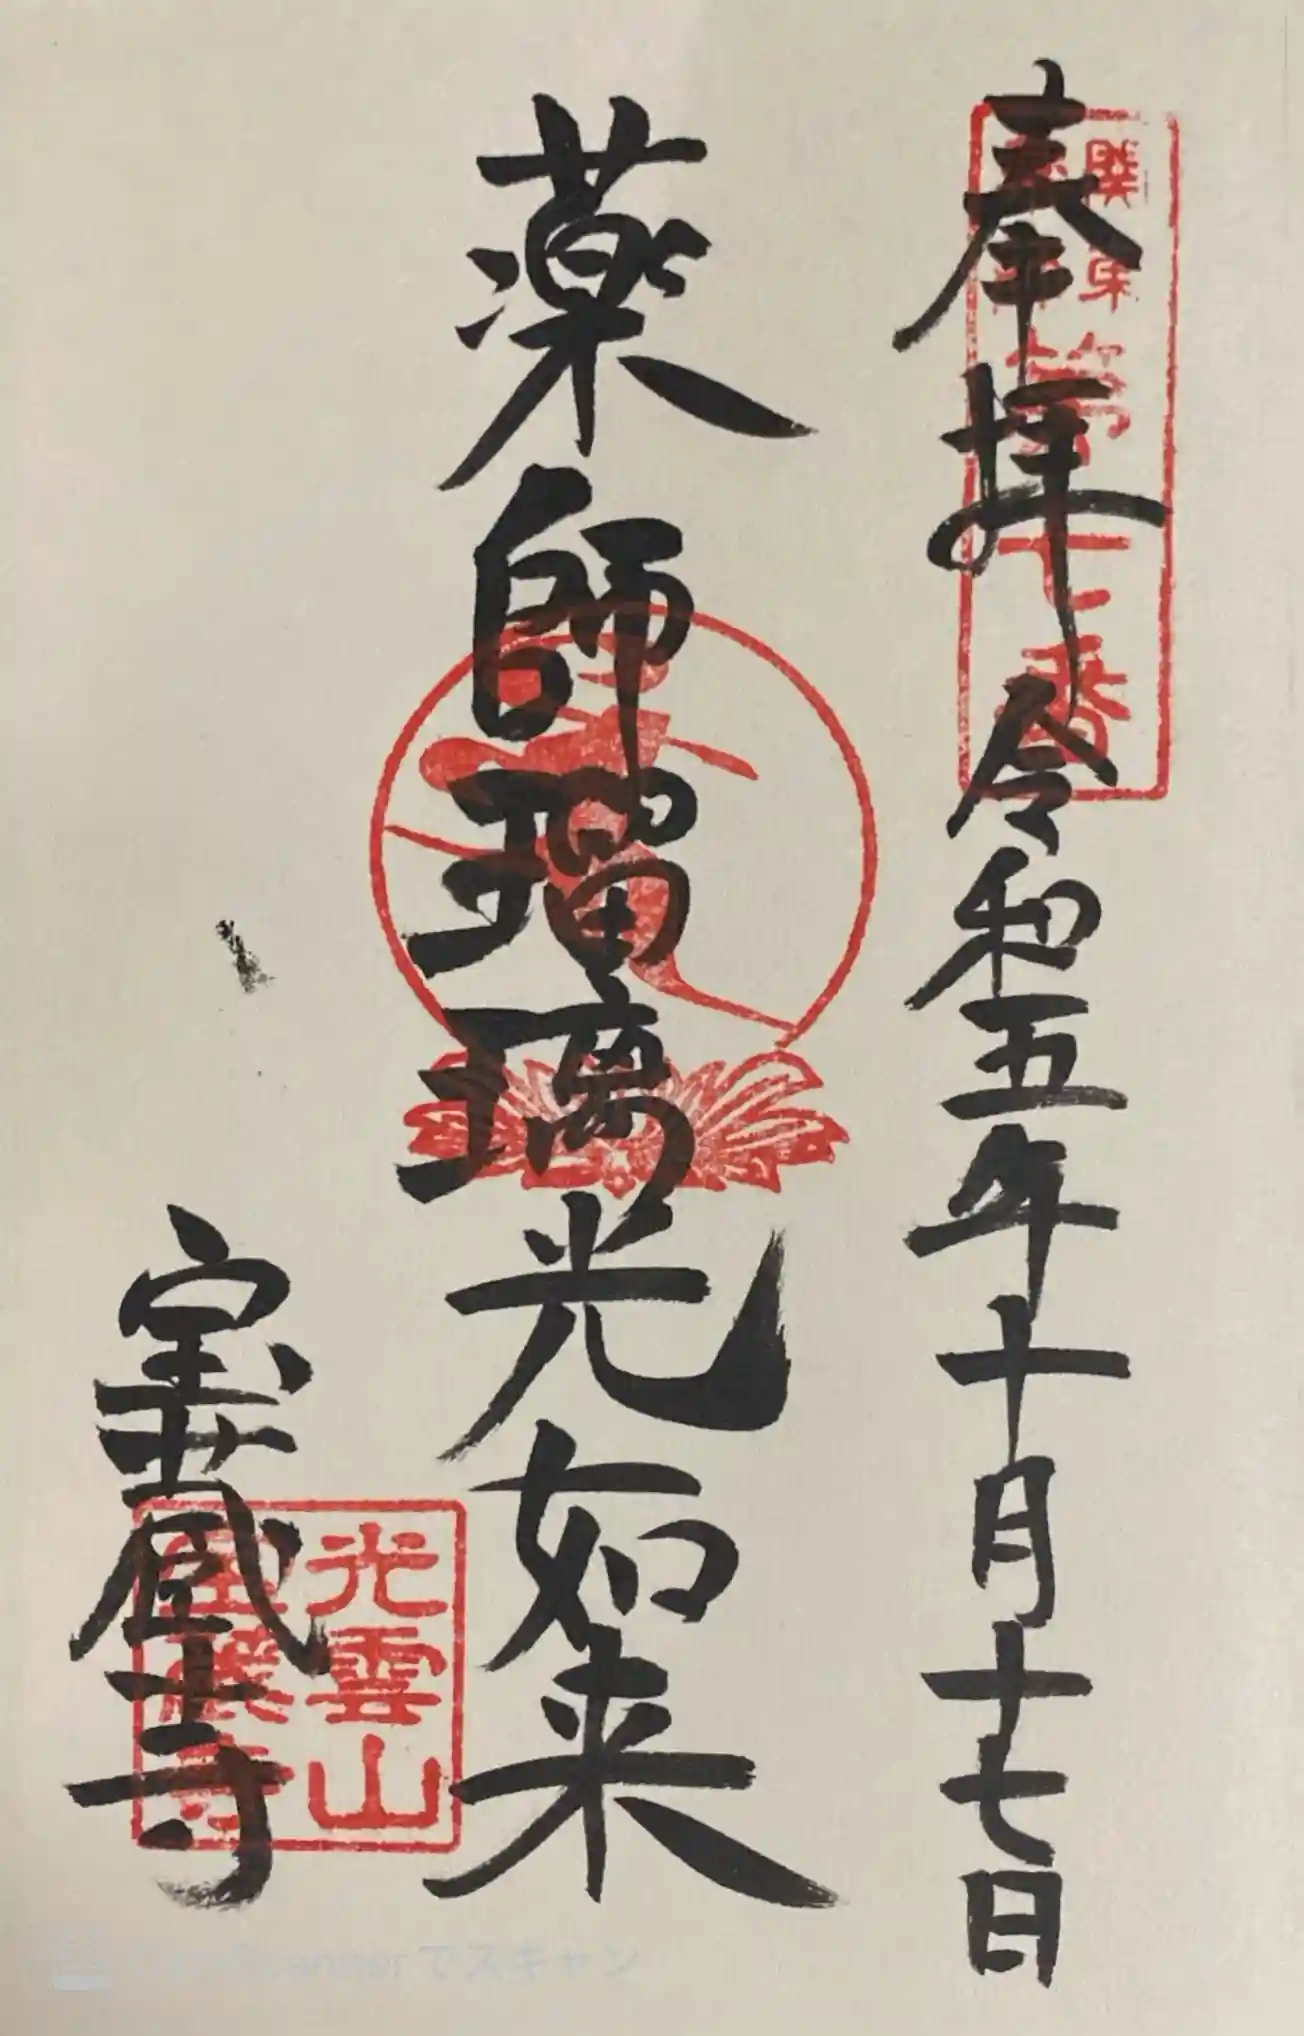 奉拝 令和五年十月十七日
薬師瑠璃光如来
宝蔵寺
光雲山
宝蔵寺
でスキャン